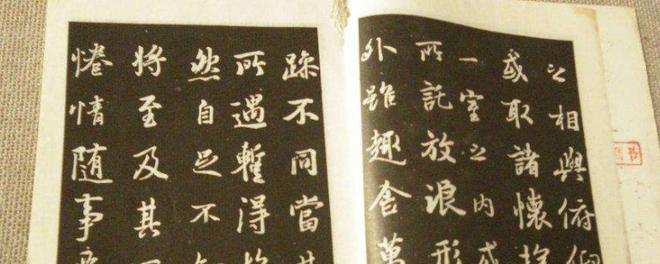 之相與俯仰
或取諸懷抱
一室之內或
所託放浪形
外雖趣舍萬
躁不同當其
所遇暫得
然自足不
將至及其
惓情隨事